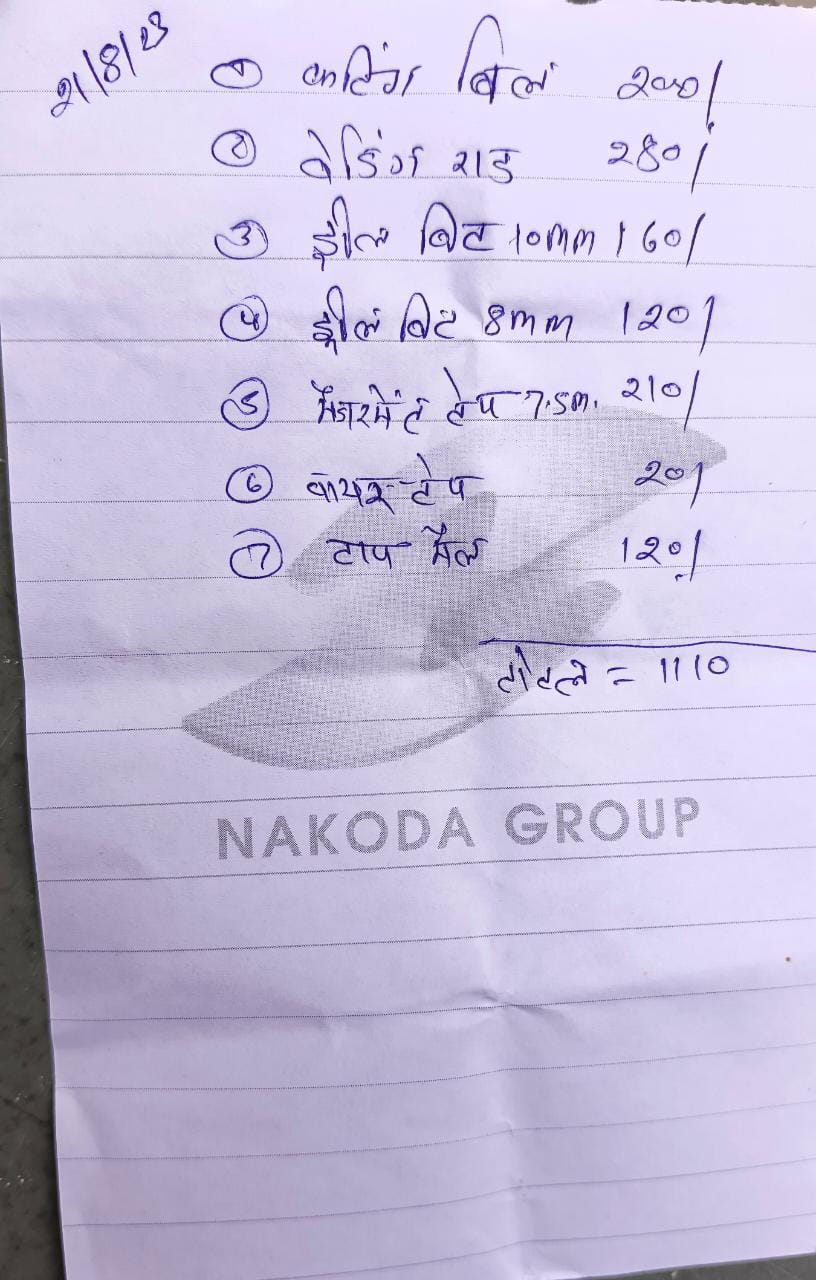 21/8/23
① कटिंग बिल 200/
② वेडिंग राड 280/
③ ड्रील बिट 10mm 160/
④ ड्रील बिट 8mm 120/
⑤ मैजरमेंट टेप 7.5m. 210/
⑥ वायर टेप 20/
⑦ टाप मैल 120/
टोटल = 1110
NAKODA GROUP